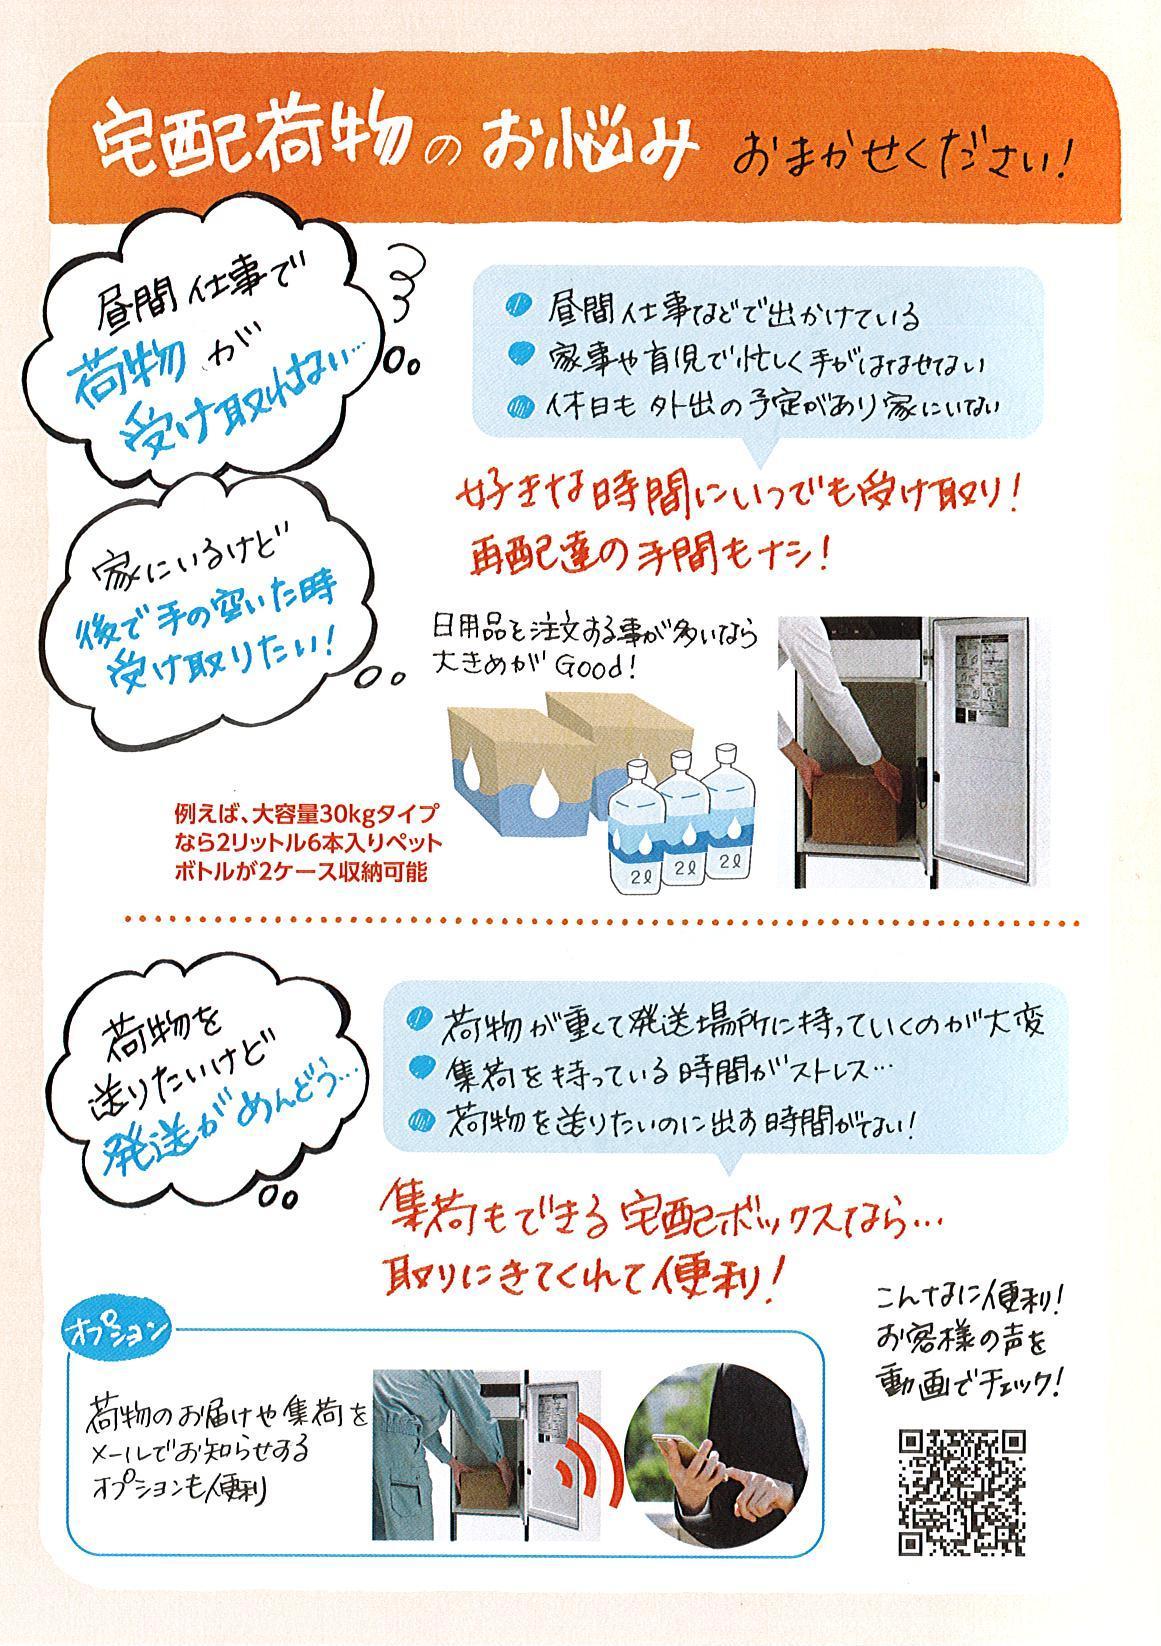 宅配荷物のお悩み おまかせください!
昼間仕事で
荷物が
受け取れない…
昼間仕事などで出かけている
家事や育児で忙しく手がはなせない
休日も外出の予定があり家にいない
好きな時間にいつでも受け取り!
再配達の手間もナシ!
家にいるけど
後で手の空いた時
受け取りたい!
日用品を注文する事が多いなら
大きめがGood!
例えば、大容量30kgタイプ
なら2リットル6本入りペット
ボトルが2ケース収納可能
2ℓ
2ℓ
2ℓ
荷物を
送りたいけど
発送がめんどう…
荷物が重くて発送場所に持っていくのが大変
集荷を待っている時間がストレス…
荷物を送りたいのに出す時間がない!
集荷もできる宅配ボックスなら…
取りにきてくれて便利!
オプション
荷物のお届けや集荷を
メールでお知らせする
オプションも便利
こんなに便利!
お客様の声を
動画でチェック!